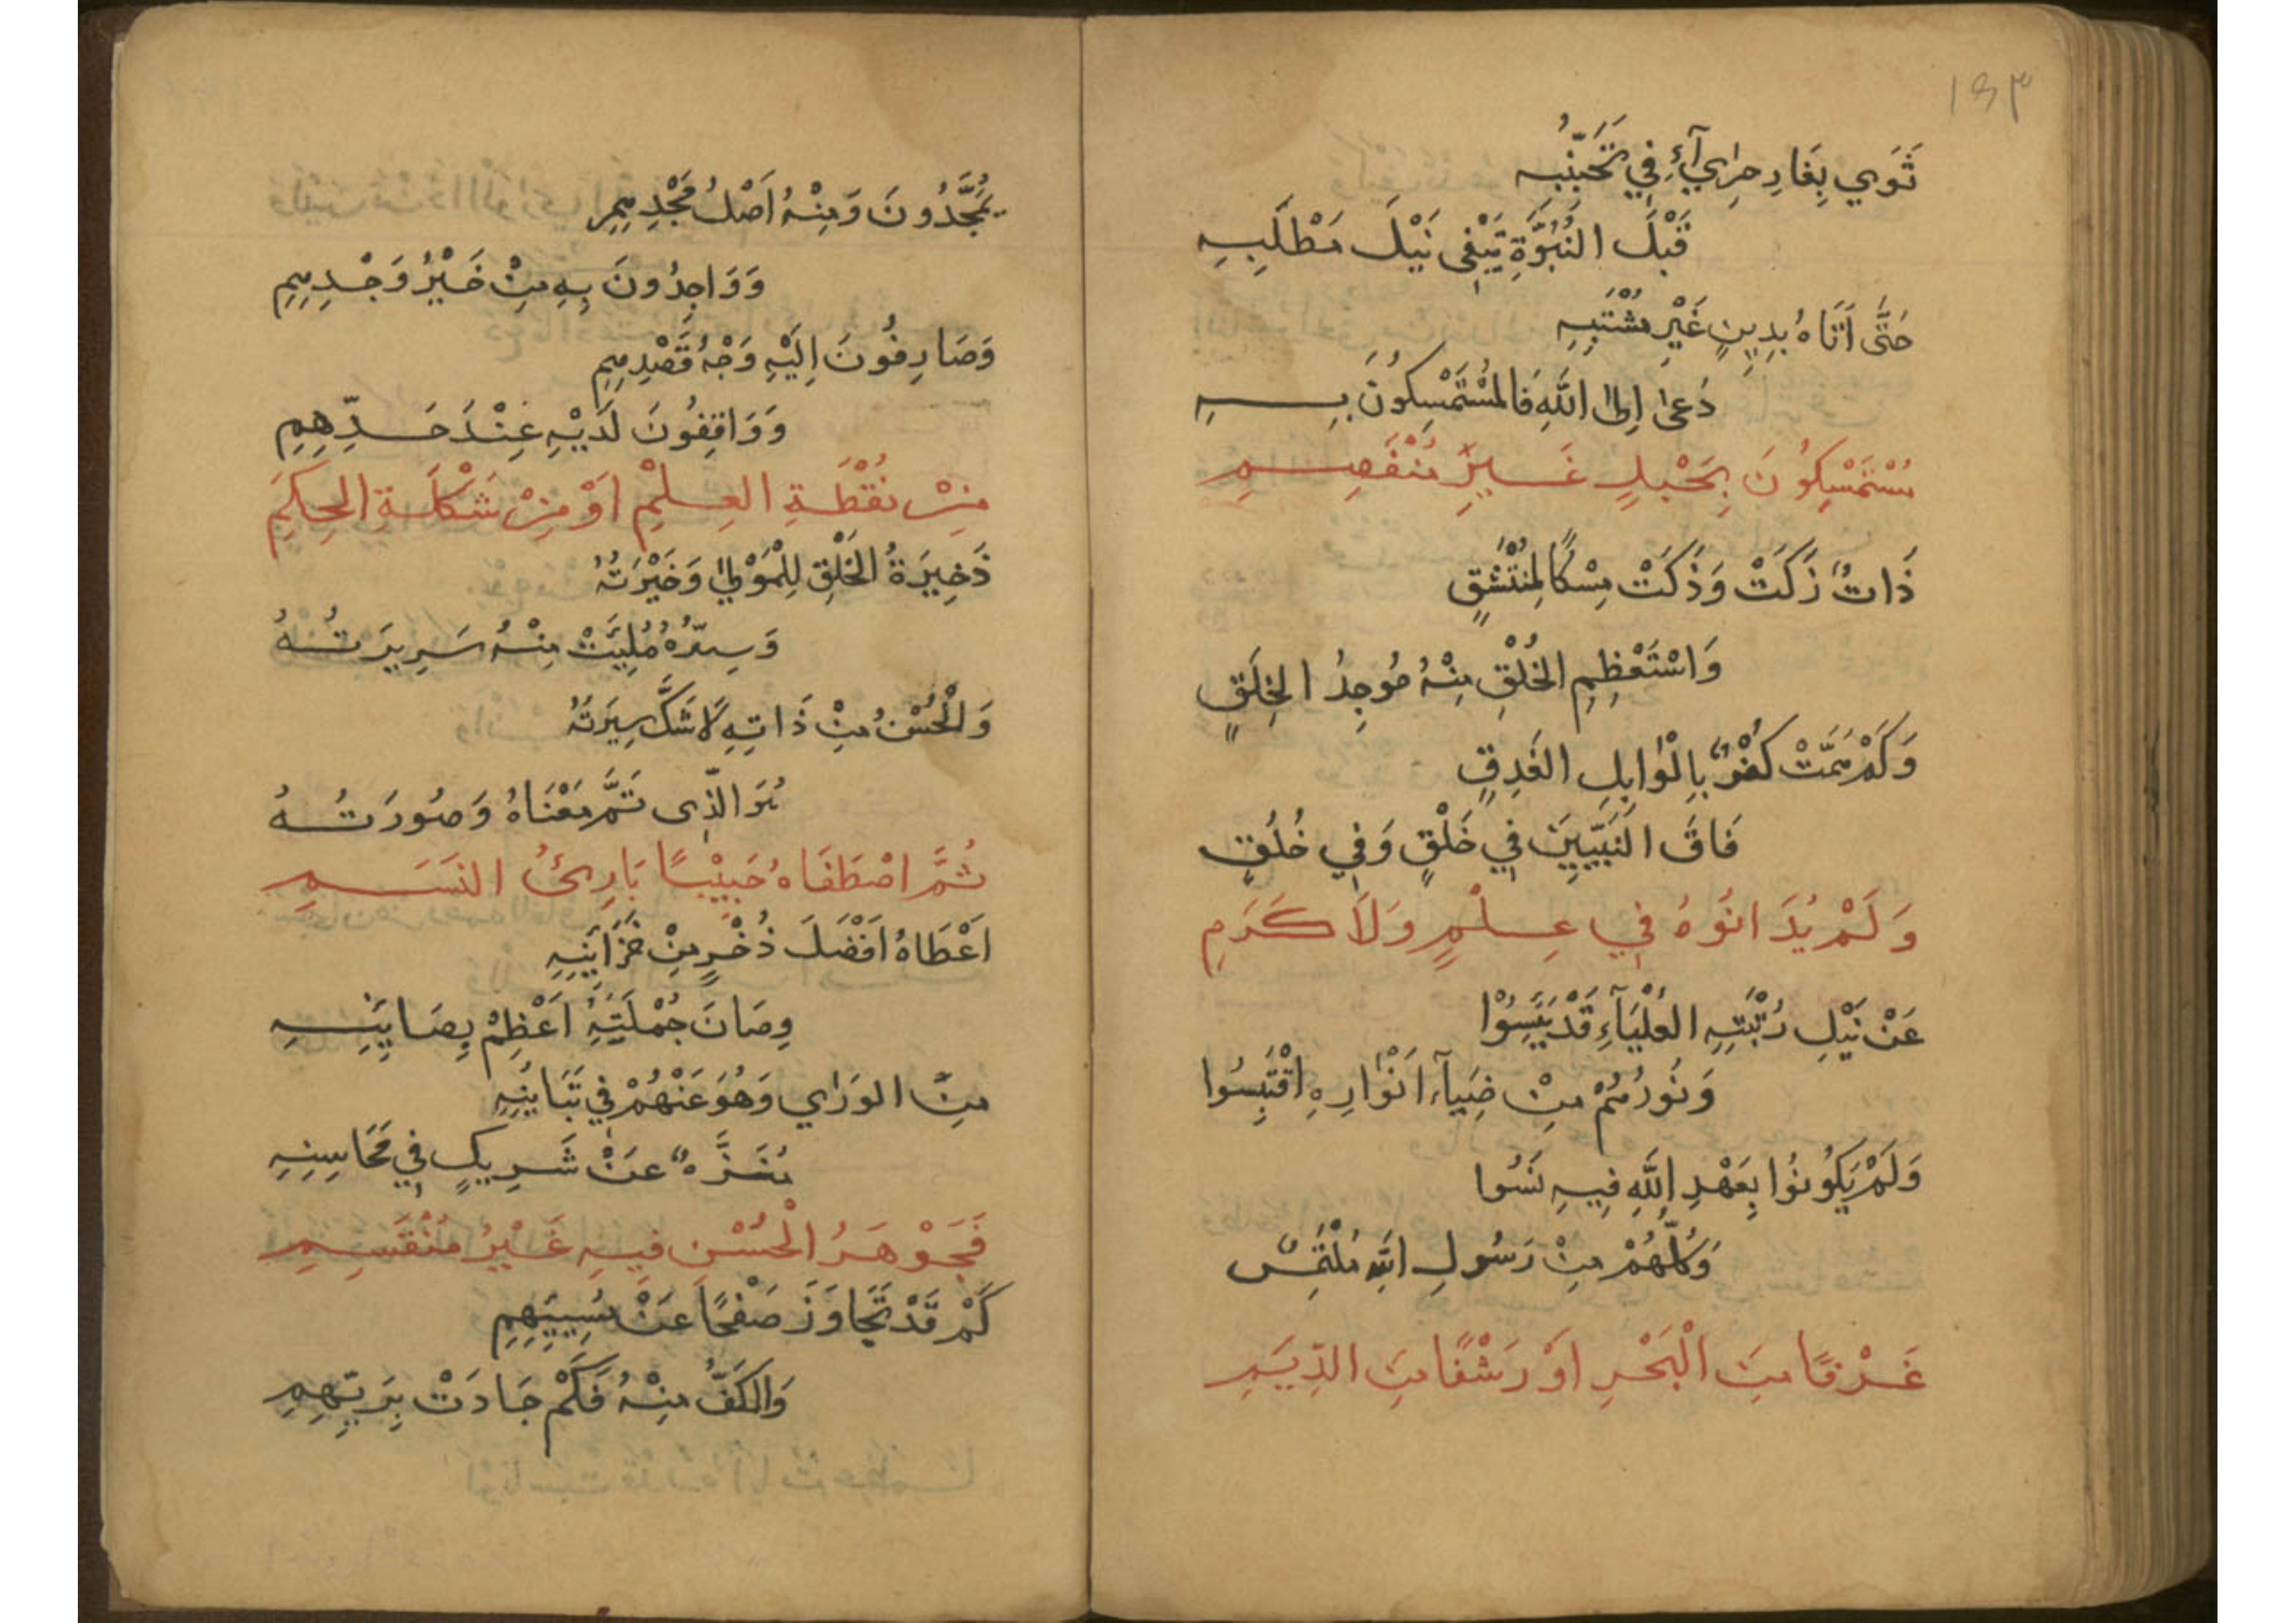 ١٤٣
ثَوٰي بِغَارِ حِرٰاءٍ فِي تَحَنِّبُهِ
قَبْلَ النُّبُوَّةِ يَبْغِى نَيْلَ مَطْلَبِهِ
حَتَّى اَتَاهُ بِدِينٍ غَيْرِ مُشْتَبِهِ
دَعٰى اِلىٰ اللَّهِ فَالمُسْتَمْسِكُونَ بِهِ
مُسْتَمْسِكُونَ بِحَبْلٍ غَيْرِ مُنْفَصِمِ
ذَاتٌ زَكَتْ وَذَكَتْ مِسْكًا لِمُنْتَشِقٍ
وَاسْتَعْظِمِ الخُلْقِ مِنْهُ مُوجِدُ الخِلَقٍ
وَكَمْ هَمَتْ كَفُّهُ بِالْوٰابِلِ الغَدِقٍ
فَاقَ النَّبِيِّينَ فِي خَلْقٍ وَفِي خُلُقٍ
وَلَمْ يُدَانُوهُ فِي عِلْمٍ وَلَا كَرَمِ
عَنْ نَيْلِ رُتْبَتِهِ العُلْيَآءِ قَدْ يَئِسُوْا
وَنُورُهُمْ مِنْ ضِيَآءِ اَنْوٰارِهِ اقْتَبِسُوا
وَلَمْ يَكُونُوا بِعَهْدِ اللَّهِ فِيهِ نَسُوا
وَكُلُّهُمْ مِنْ رَسُولِ اللهِ مُلْتَمِسٌ
غَرْفًا مِنَ الْبَحْرِ اَوْ رَشْفًا مِنَ الدِّيَمِ
يُمَجَّدُونَ وَمِنْهُ اَصْلُ مَجْدِهِمِ
وَوَاجِدُونَ بِهِ مِنْ خَيْرُ وَجْدِهِمِ
وَصَارِفُونَ اِلَيْهِ وَجْهُ قَصْدِهِمِ
وَوَاقِفُونَ لَدَيْهِ عِنْدَ حَدِّهِمِ
مِنْ نُقْطَةِ العِلْمِ اَوْ مِنْ شَكْلَةِ الحِكَمِ
ذَخِيرَةُ الخَلْقِ لِلْمَوْلىٰ وَخَيْرَتُهُ
وَسِرُّهُ مُلِئَتْ مِنْهُ سَرِيرَتُهُ
وَالْحُسْنُ مِنْ ذَاتِهِ لَا شَكَّ سِيرَتُهُ
هُوَ الَّذِى تَمَّ مَعْنَاهُ وَصُورَتُهُ
ثُمَّ اصْطَفَاهُ حَبِيْبًا بَارِئُ النَسَمِ
اَعْطَاهُ اَفْضَلَ ذُخْرٍ مِنْ خَزَايِنِهِ
وِصَانَ جُمْلَتِهُ اَعْظِمْ بِصَايِنِهِ
مِنَ الوَرٰي وَهُوَ عَنْهُمْ فِي تَبَايُنِهِ
مُنَزَّهٌ عَنْ شَرِيكٍ فِي مَحَاسِنِهِ
فَجَوْهَرُ الْحُسْنِ فِيهِ غَيْرُ مُنْقَسِمِ
كَمْ قَدْ تَجَاوَزَ صَفْحًا عَنْ مُسِيئِهِمِ
وَالكَفُّ مِنْهُ فَكَمْ جَادَتْ بِرَيِّهِمِ